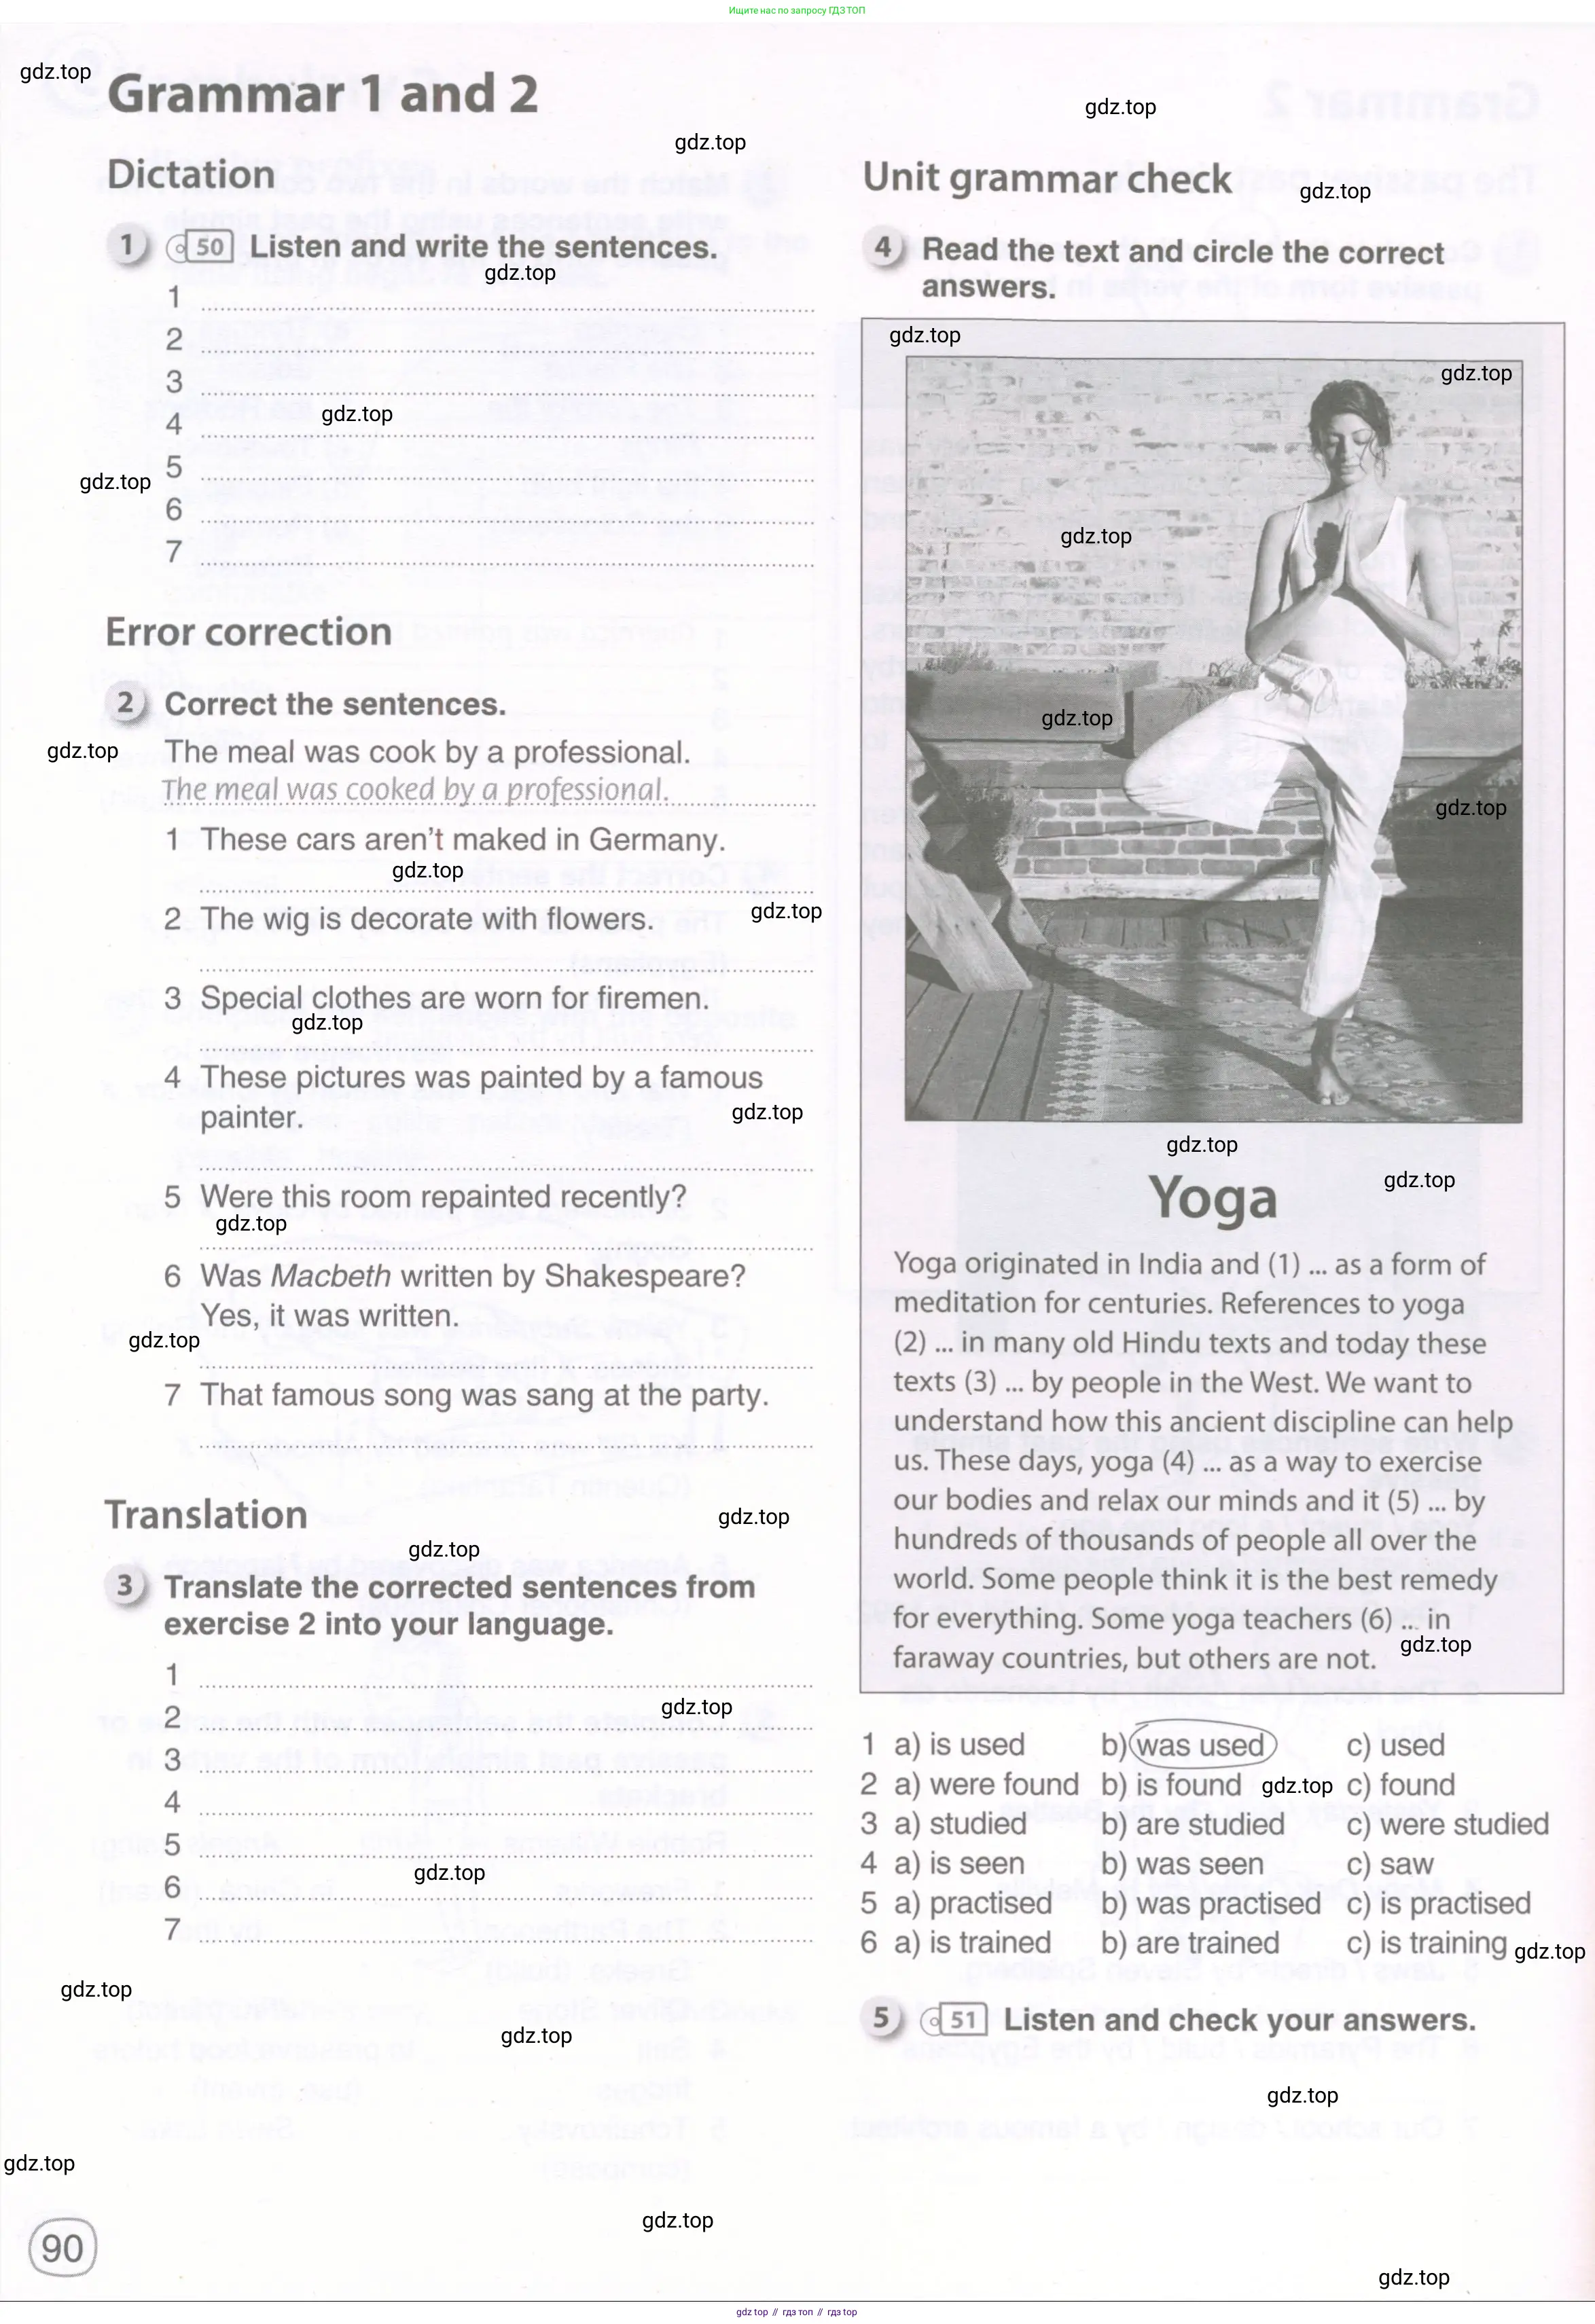 Ищите нас по запросу ГДЗ ТОП
gdz.top
Grammar 1 and 2
gdz.top
gdz.top
Dictation
1 50 Listen and write the sentences.
gdz.top
1
2
3
gdz.top
4
gdz.top
5
6
7
Error correction
2 Correct the sentences.
gdz.top
The meal was cook by a professional.
The meal was cooked by a professional.
1 These cars aren't maked in Germany.
gdz.top
gdz.top
2 The wig is decorate with flowers.
3 Special clothes are worn for firemen.
gdz.top
4 These pictures was painted by a famous
painter.
gdz.top
5 Were this room repainted recently?
gdz.top
6 Was Macbeth written by Shakespeare?
Yes, it was written.
gdz.top
7 That famous song was sang at the party.
Translation
gdz.top
gdz.top
3 Translate the corrected sentences from
exercise 2 into your language.
1
2
gdz.top
3
4
5
gdz.top
6
7
gdz.top
gdz.top
gdz.top
gdz.top
90
Unit grammar check
gdz.top
4 Read the text and circle the correct
answers.
gdz.top
gdz.top
gdz.top
gdz.top
gdz.top
gdz.top
gdz.top
Yoga
Yoga originated in India and (1) ... as a form of
meditation for centuries. References to yoga
(2) ... in many old Hindu texts and today these
texts (3) ... by people in the West. We want to
understand how this ancient discipline can help
us. These days, yoga (4) ... as a way to exercise
our bodies and relax our minds and it (5) ... by
hundreds of thousands of people all over the
world. Some people think it is the best remedy
for everything. Some yoga teachers (6) ... in
gdz.top
faraway countries, but others are not.
1 a) is used b) was used c) used
2 a) were found b) is found gdz.top c) found
3 a) studied b) are studied c) were studied
4 a) is seen b) was seen c) saw
5 a) practised b) was practised c) is practised
6 a) is trained b) are trained c) is training
gdz.top
5 51 Listen and check your answers.
gdz.top
gdz.top
gdz top // гдз топ // гдз top